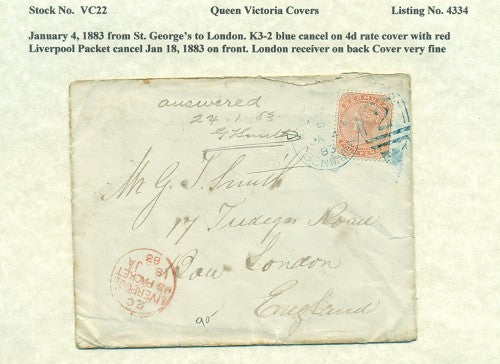 Stock No. VC22 Queen Victoria Covers Listing No. 4334
January 4, 1883 from St. George's to London. K3-2 blue cancel on 4d rate cover with red
Liverpool Packet cancel Jan 18, 1883 on front. London receiver on back Cover very fine
answered
24.1.83
Mr G. T. Smith
17 Tredegar Road
Bow London
England
LIVERPOOL
US PACKET
18 JA
83